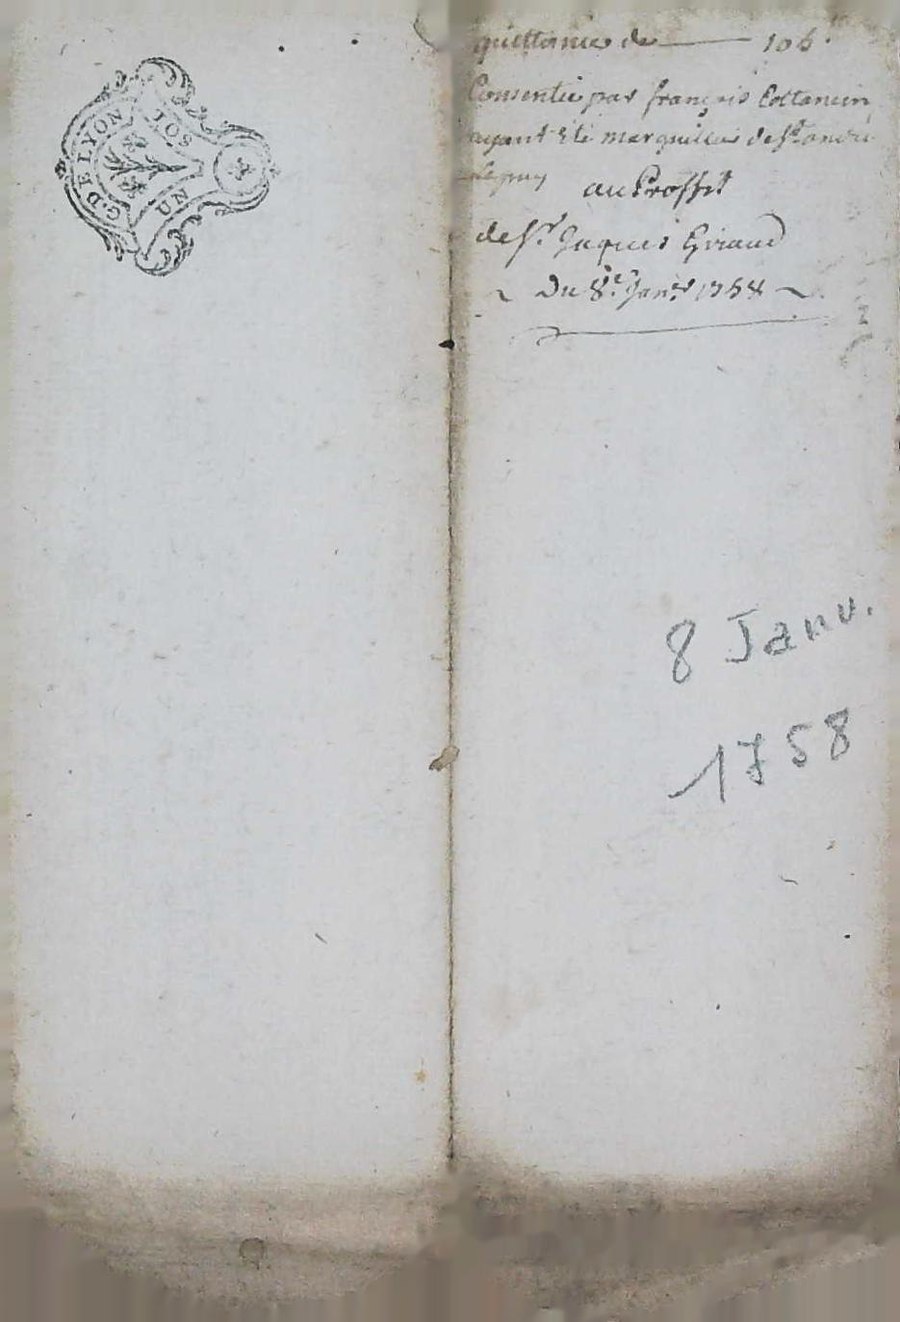 G. DE LYON
UN SOL
quittance de ——— 106ᵗ
Consentie par françois Coltancin
ayant été marguillier de Sᵗ andré
le puy
au Proffit
de Sʳ. Jaques Giraud
~ Du 8ᵉ. Janᵉʳ 1758 ~
8 Janv.
1758